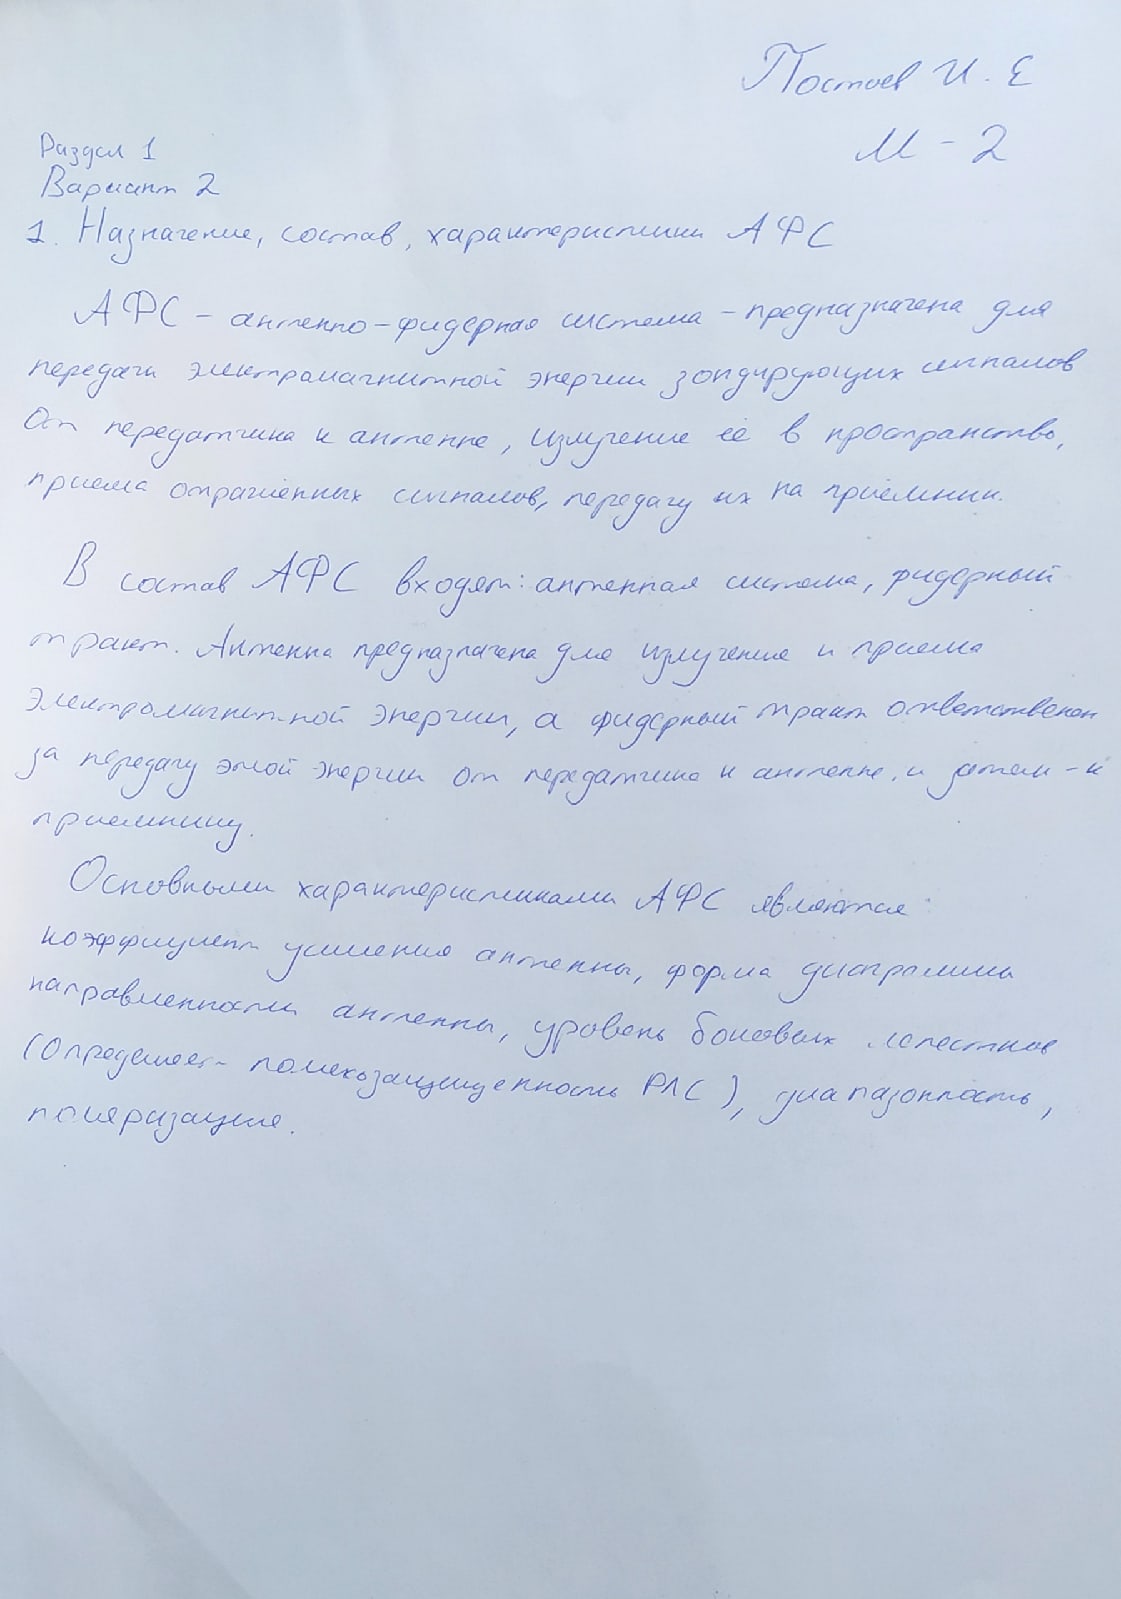 Постоев И. Е
М - 2
Раздел 1
Вариант 2
1. Назначение, состав, характеристики АФС
АФС - антенно-фидерная система - предназначена для
передачи электромагнитной энергии зондирующих сигналов
От передатчика к антенне, излучение её в пространство,
приема отражённых сигналов, передачу их на приёмник.
В состав АФС входят: антенная система, фидерный
тракт. Антенна предназначена для излучения и приема
электромагнитной энергии, а фидерный тракт ответственен
за передачу этой энергии от передатчика к антенне, и затем - к
приемнику.
Основными характеристиками АФС являются:
коэффициент усиления антенны, форма диаграммы
направленности антенны, уровень боковых лепестков
(Определяет помехозащищенность РЛС), диапазонность,
поляризация.